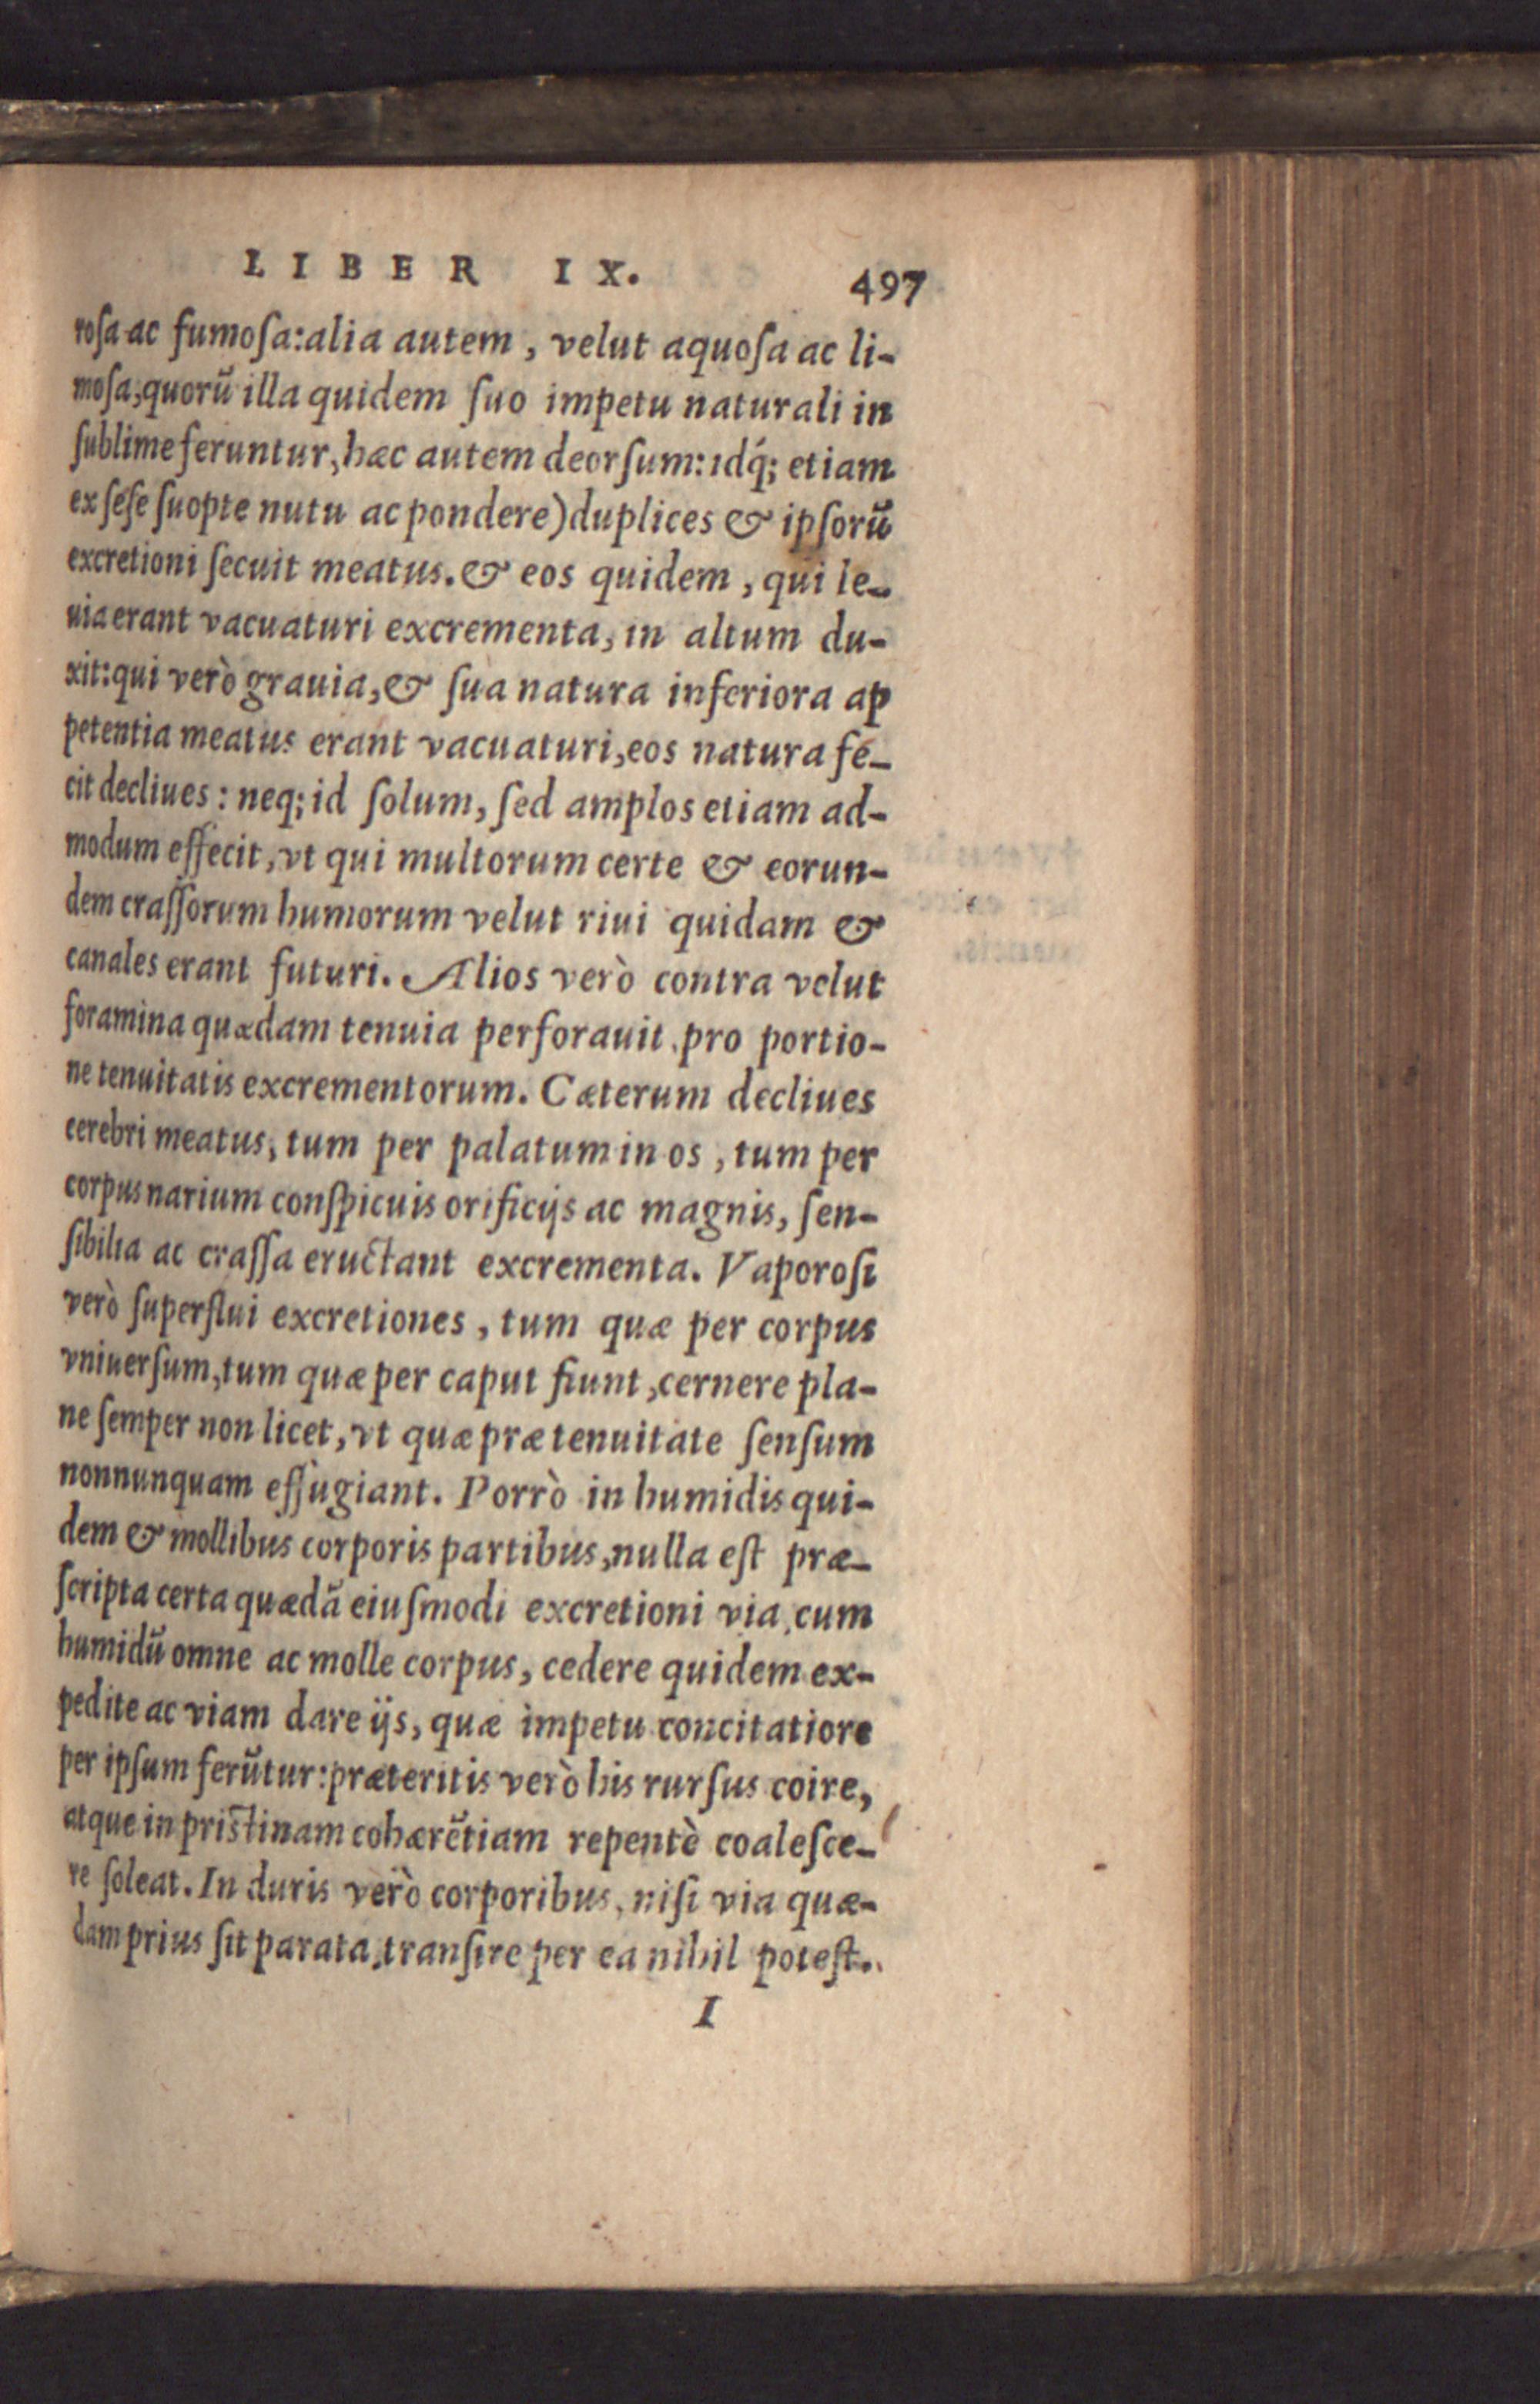 LIBER IX. 497
roſa ac fumoſa:alia autem, velut aquoſa ac li-
moſa,quorū illa quidem ſuo impetu naturali in
ſublime feruntur,hæc autem deorſum:idq́; etiam
ex ſeſe ſuopte nutu ac pondere)duplices & ipſorū
excretioni ſecuit meatus.& eos quidem, qui le-
uia erant vacuaturi excrementa, in altum du-
xit:qui verò grauia,& ſua natura inferiora ap
petentia meatus erant vacuaturi,eos natura fe-
cit decliues: neq; id ſolum, ſed amplos etiam ad-
modum effecit, vt qui multorum certe & eorun-
dem craſſorum humorum velut riui quidam &
canales erant futuri. Alios verò contra velut
foramina quædam tenuia perforauit,pro portio-
ne tenuitatis excrementorum. Cæterum decliues
cerebri meatus, tum per palatum in os, tum per
corpus narium conſpicuis orificijs ac magnis, ſen-
ſibilia ac craſſa eructant excrementa. Vaporoſi
verò ſuperflui excretiones, tum quæ per corpus
vniuerſum,tum quæ per caput fiunt,cernere pla-
ne ſemper non licet, vt quæ præ tenuitate ſenſum
nonnunquam effugiant. Porrò in humidis qui-
dem & mollibus corporis partibus,nulla eſt præ-
ſcripta certa quædā eiuſmodi excretioni via,cum
humidū omne ac molle corpus, cedere quidem ex-
pedite ac viam dare ijs, quæ impetu concitatiore
per ipſum ferūtur:præteritis verò his rurſus coire,
atque in priſtinam cohærētiam repentè coaleſce-
re ſoleat. In duris verò corporibus, niſi via quæ-
dam prius ſit parata,tranſire per ea nihil poteſt.
I